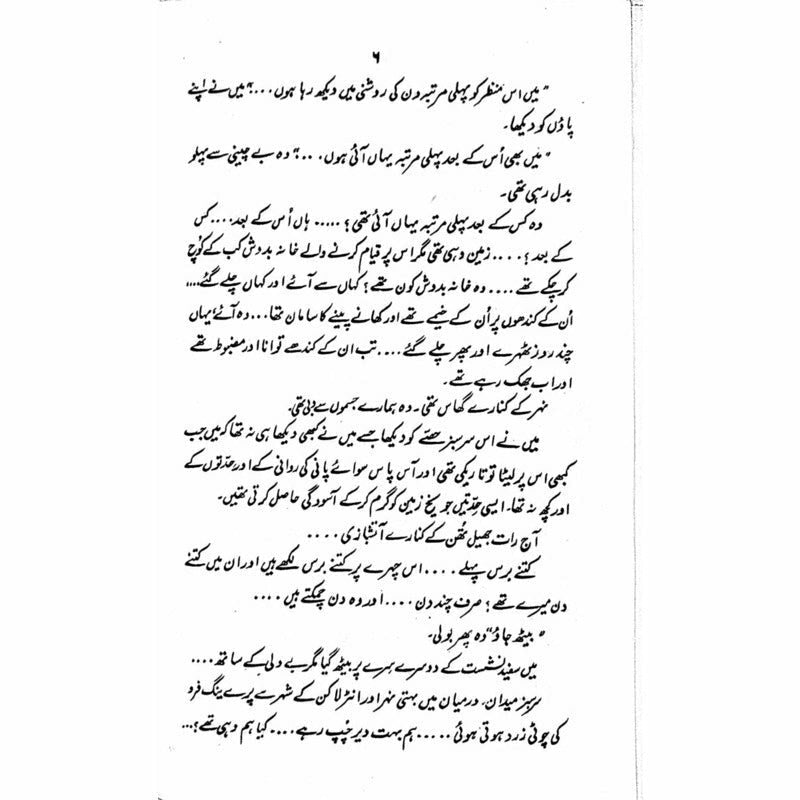 ۶
"میں اس منظر کو پہلی مرتبہ دن کی روشنی میں دیکھ رہا ہوں...." میں نے اپنے
پاؤں کو دیکھا۔
"میں بھی اُس کے بعد پہلی مرتبہ یہاں آئی ہوں....." وہ بے چینی سے پہلو
بدل رہی تھی۔
وہ کس کے بعد پہلی مرتبہ یہاں آئی تھی؟ ..... ہاں اُس کے بعد.... کس
کے بعد؟.... زمین وہی تھی مگر اس پر قیام کرنے والے خانہ بدوش کب کے کُوچ
کر چکے تھے .... وہ خانہ بدوش کون تھے؟ کہاں سے آئے اور کہاں چلے گئے....
اُن کے کندھوں پر اُن کے خیمے تھے اور کھانے پینے کا سامان تھا... وہ آئے، یہاں
چند روز ٹھہرے اور پھر چلے گئے.... تب ان کے کندھے توانا اور مضبوط تھے
اور اب جھک رہے تھے۔
نہر کے کنارے گھاس تھی۔ وہ ہمارے جسموں سے دبی تھی۔
میں نے اس سرسبز حصّے کو دیکھا جسے میں نے کبھی دیکھا ہی نہ تھا کہ میں جب
کبھی اس پر لیٹا تو تاریکی تھی اور آس پاس سوائے پانی کی روانی کے اور حدّتوں کے
اور کچھ نہ تھا۔ ایسی حدّتیں جو یخ زمین کو گرم کر کے آسودگی حاصل کرتی تھیں۔
آج رات جھیل تُھن کے کنارے آتشبازی ....
کتنے برس پہلے .... اس چہرے پر کتنے برس لکھے ہیں اور ان میں کتنے
دن میرے تھے؟ صرف چند دن .... اور وہ دن چمکتے ہیں ....
"بیٹھ جاؤ" وہ پھر بولی۔
میں سفید نشست کے دوسرے سِرے پر بیٹھ گیا مگر بے دلی کے ساتھ ....
سرسبز میدان۔ درمیان میں بہتی نہر اور انٹرلاکن کے شہر سے پرے ینگ فرو
کی چوٹی زرد ہوتی ہوئی ..... ہم بہت دیر چُپ رہے .... کیا ہم وہی تھے؟...